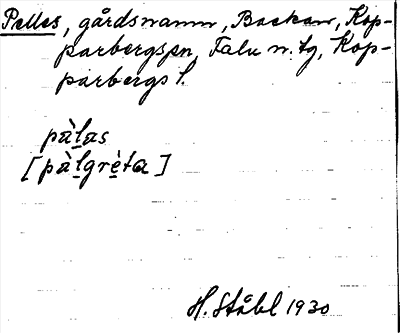 Pelles, gårdsnamn, Backen, Kop-
parbergs sn, Falu n. tg, Kop-
parbergs l.
pàlas
[pàlgrèta]
H. Ståhl 1930